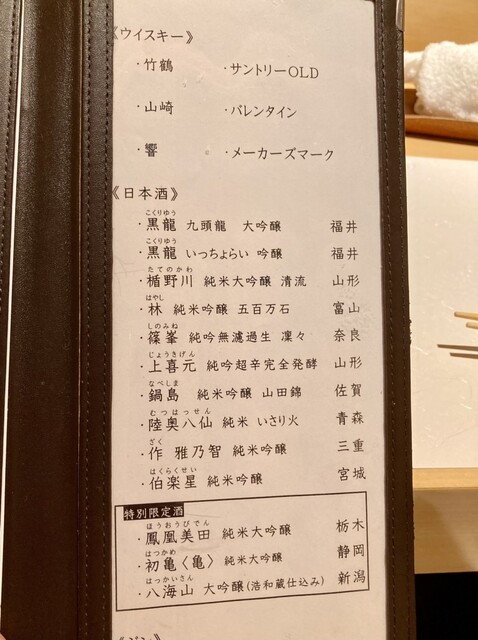 《ウイスキー》
・竹鶴 ・サントリーOLD
・山崎 ・バレンタイン
・響 ・メーカーズマーク
《日本酒》
こくりゆう
・黒龍 九頭龍 大吟醸 福井
こくりゆう
・黒龍 いっちょらい 吟醸 福井
たてのかわ
・楯野川 純米大吟醸 清流 山形
はやし
・林 純米吟醸 五百万石 富山
しのみね
・篠峯 純吟無濾過生 凜々 奈良
じょうきげん
・上喜元 純吟超辛完全発酵 山形
なべしま
・鍋島 純米吟醸 山田錦 佐賀
むつはっせん
・陸奥八仙 純米 いさり火 青森
ざく
・作 雅乃智 純米吟醸 三重
はくらくせい
・伯楽星 純米吟醸 宮城
特別限定酒
ほうおうびでん
・鳳凰美田 純米大吟醸 栃木
はつかめ
・初亀〈亀〉 純米大吟醸 静岡
はっかいさん
・八海山 大吟醸(浩和蔵仕込み) 新潟